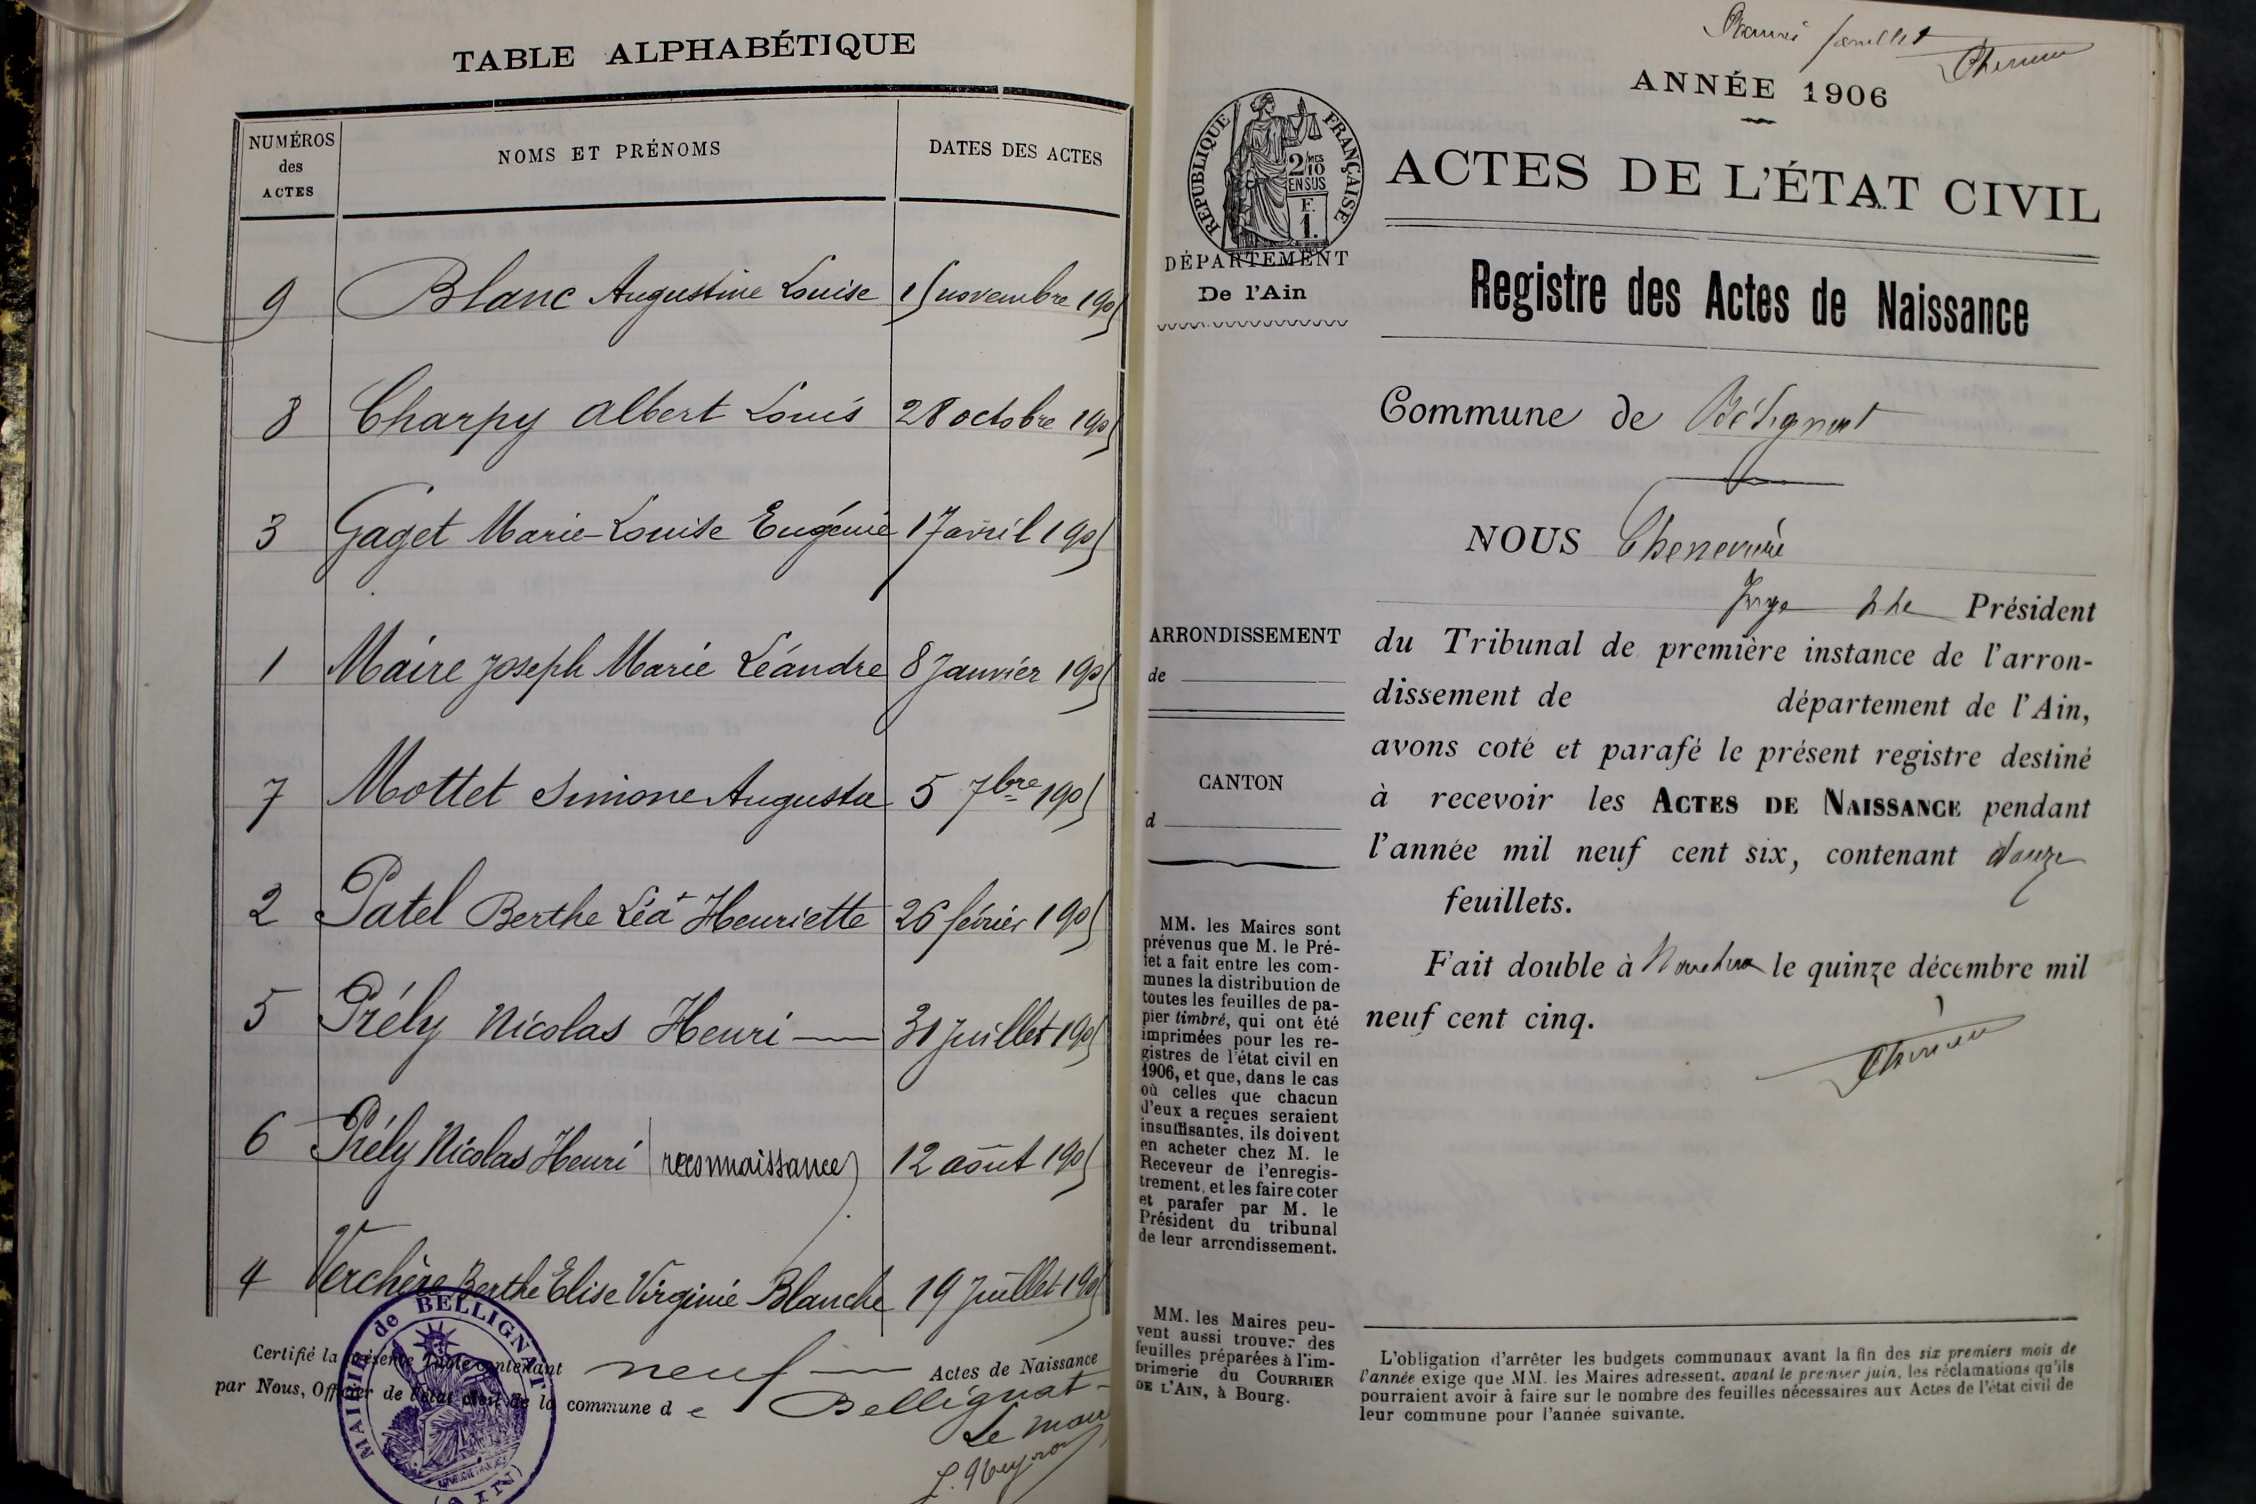 TABLE ALPHABÉTIQUE
NUMÉROS des ACTES
NOMS ET PRÉNOMS
DATES DES ACTES
9 Blanc Augustine Louise 15 novembre 1905
8 Charpy Albert Louis 28 octobre 1905
3 Gaget Marie-Louise Eugénie 17 avril 1905
1 Maire Joseph Marie Léandre 8 Janvier 1905
7 Mottet Simone Augusta 5 7bre 1905
2 Patel Berthe Léa Henriette 26 février 1905
5 Prély Nicolas Henri 31 Juillet 1905
6 Prély Nicolas Henri (reconnaissance) 12 août 1905
4 Verchère Berthe Elise Virginie Blanche 19 Juillet 1905
Certifié la présente Table contenant neuf Actes de Naissance
par Nous, Officier de l'état civil de la commune de Bellignat
Le maire
MAIRIE de BELLIGNAT
(AIN)
feuillet
ANNÉE 1906
RÉPUBLIQUE FRANÇAISE
2/10 MES
EN SUS
F.
1.
ACTES DE L'ÉTAT CIVIL
DÉPARTEMENT
De l'Ain
Registre des Actes de Naissance
Commune de Bélignat
NOUS Chenevière
Juge Président
du Tribunal de première instance de l'arron-
dissement de département de l'Ain,
avons coté et parafé le présent registre destiné
à recevoir les ACTES DE NAISSANCE pendant
l'année mil neuf cent six, contenant douze
feuillets.
Fait double à Nantua le quinze décembre mil
neuf cent cinq.
ARRONDISSEMENT
de
CANTON
d
MM. les Maires sont
prévenus que M. le Pré-
fet a fait entre les com-
munes la distribution de
toutes les feuilles de pa-
pier timbré, qui ont été
imprimées pour les re-
gistres de l'état civil en
1906, et que, dans le cas
où celles que chacun
d'eux a reçues seraient
insuffisantes, ils doivent
en acheter chez M. le
Receveur de l'enregis-
trement, et les faire coter
et parafer par M. le
Président du tribunal
de leur arrondissement.
MM. les Maires peu-
vent aussi trouver des
feuilles préparées à l'im-
primerie du COURRIER
DE L'AIN, à Bourg.
L'obligation d'arrêter les budgets communaux avant la fin des six premiers mois de
l'année exige que MM. les Maires adressent, avant le premier juin, les réclamations qu'ils
pourraient avoir à faire sur le nombre des feuilles nécessaires aux Actes de l'état civil de
leur commune pour l'année suivante.